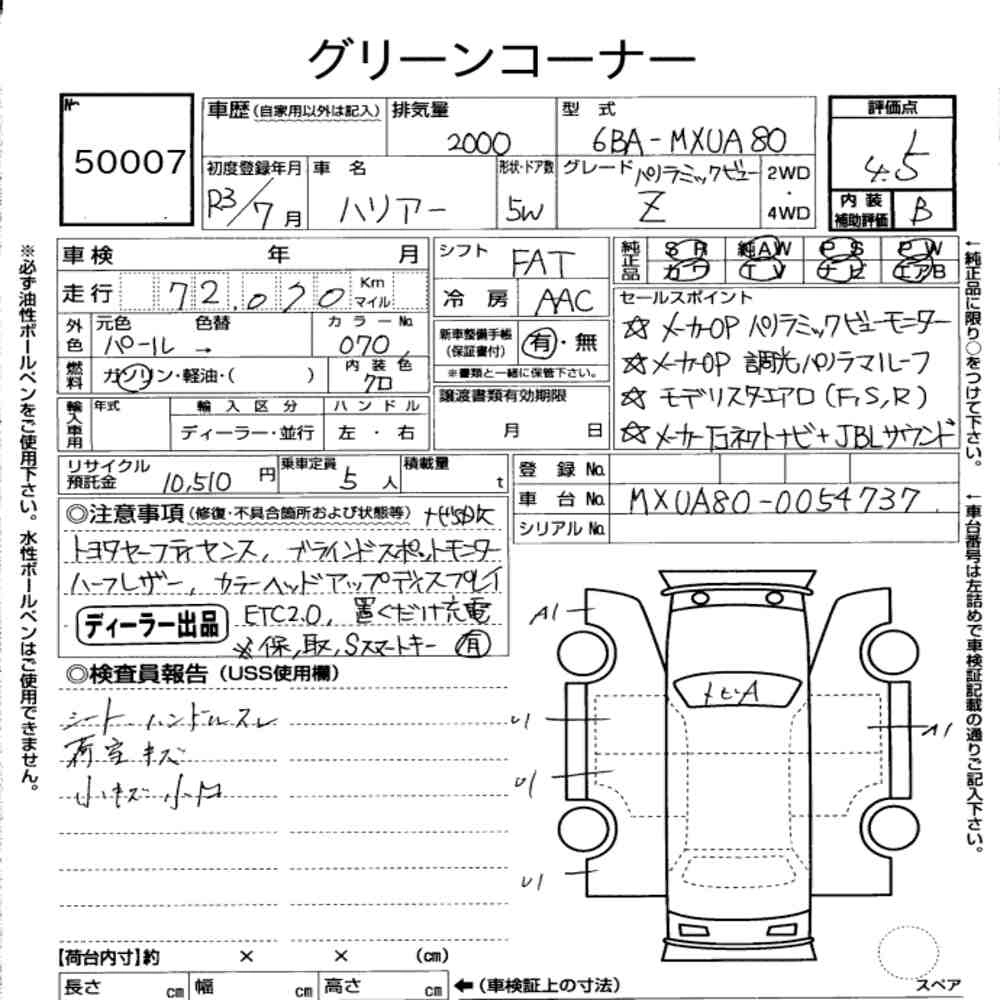 グリーンコーナー
No.
50007
車歴(自家用以外は記入) 排気量 2000
型 式 6BA-MXUA80
評価点 4.5
初度登録年月 R3/7月
車 名 ハリアー
形状・ドア数 5W
グレード パノラミックビュー Z
2WD・4WD
内装補助評価 B
車検 年 月
走行 72,070 Km マイル
外色 元色 パール → 色替
カラーNo. 070
燃料 ガソリン・軽油・( )
内装色 クロ
輸入車用 年式 輸入区分 ディーラー・並行 ハンドル 左・右
シフト FAT
冷房 AAC
新車整備手帳(保証書付) 有・無
※書類と一緒に保管下さい。
譲渡書類有効期限
月 日
純正品 SR 純AW PS PW
カワ TV ナビ エアB
セールスポイント
☆メーカーOP パノラミックビューモニター
☆メーカーOP 調光パノラマルーフ
☆モデリスタエアロ(F,S,R)
☆メーカーT コネクトナビ+JBLサウンド
リサイクル預託金 10,510円
乗車定員 5人
積載量 t
登録No.
車台No. MXUA80-0054737
シリアルNo.
◎注意事項(修復・不具合箇所および状態等)
トヨタセーフティセンス, ブラインドスポットモニター
ハーフレザー, カラーヘッドアップディスプレイ
ディーラー出品 ETC2.0, 置くだけ充電
※保,取,Sスマートキー 有
◎検査員報告(USS使用欄)
シート ハンドルスレ
荷室キズ
小キズ 小凹
A1
トビA
U1
A1
U1
U1
【荷台内寸】約 × × (cm)
長さ cm 幅 cm 高さ cm ←(車検証上の寸法)
スペア
※必ず油性ボールペンをご使用下さい。水性ボールペンはご使用できません。
←純正品に限り○をつけて下さい。
←車台番号は左詰めで車検証記載の通りご記入下さい。